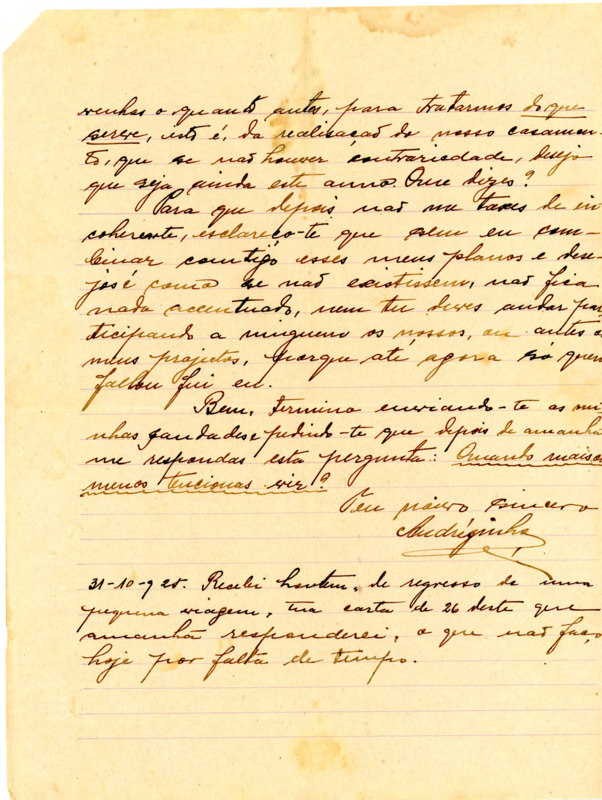 venhas o quanto antes, para tratarmos do que
serve, isto é, da realisação do nosso casamen-
to, que se não houver contrariedade, desejo
que seja ainda este anno. Que dizes?
Para que depois não me taxes de in
coherente, esclareço-te que sem eu com-
binar comtigo esses meus planos e dese-
jos é como se não existissem, não fica
nada accentuado, nem tu deves andar par
ticipando a ninguem os nossos, ou antes os
meus projectos, porque até agora só quem
fallou fui eu.
Bem, termino enviando-te as mi
nhas saudades e pedindo-te que depois de amanhã
me respondas esta pergunta: Quando mais ou
menos tencionas vir?
Teu noivo sincero
Andrézinho
31-10-925. Recebi hontem, de regresso de uma
pequena viagem, tua carta de 26 deste que
amanhã responderei, o que não faço
hoje por falta de tempo.